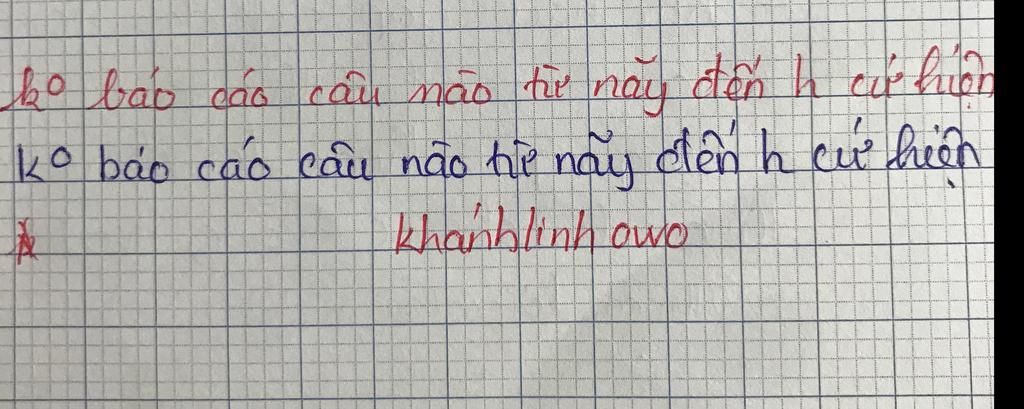 ko báo cáo câu nào từ nãy đến h cứ hiện
ko báo cáo câu nào từ nãy đến h cứ hiện
khánhlinh owo